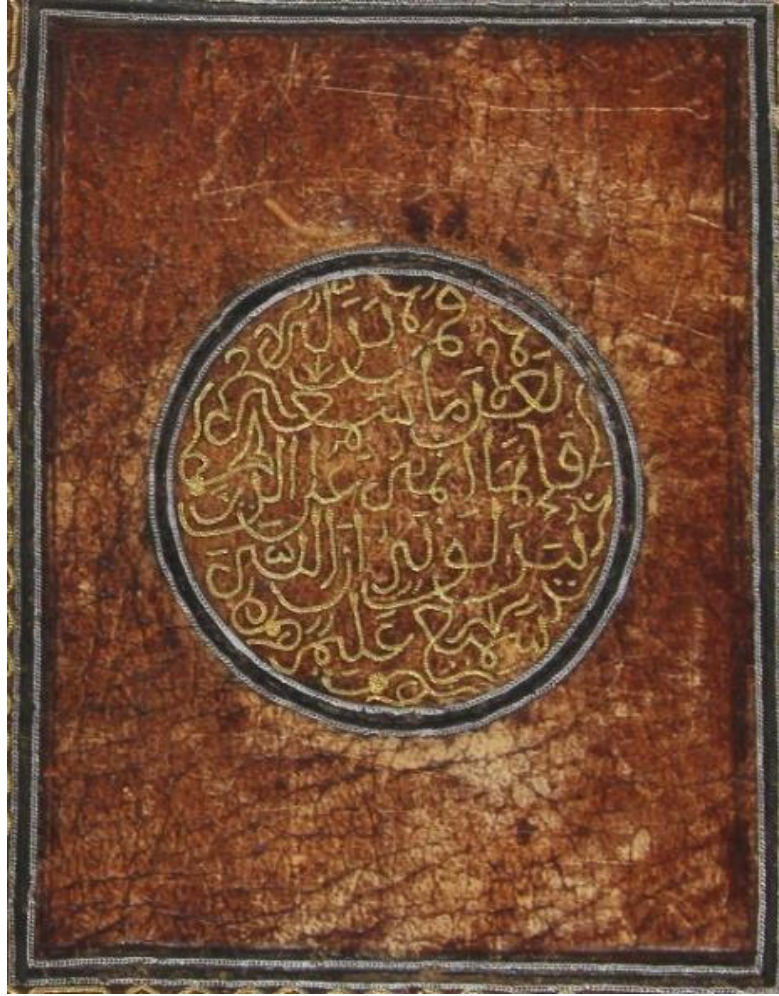 فمن بدله
بعد ما سمعه
فإنما إثمه على الذين
يبدلونه إن الله
سميع عليم